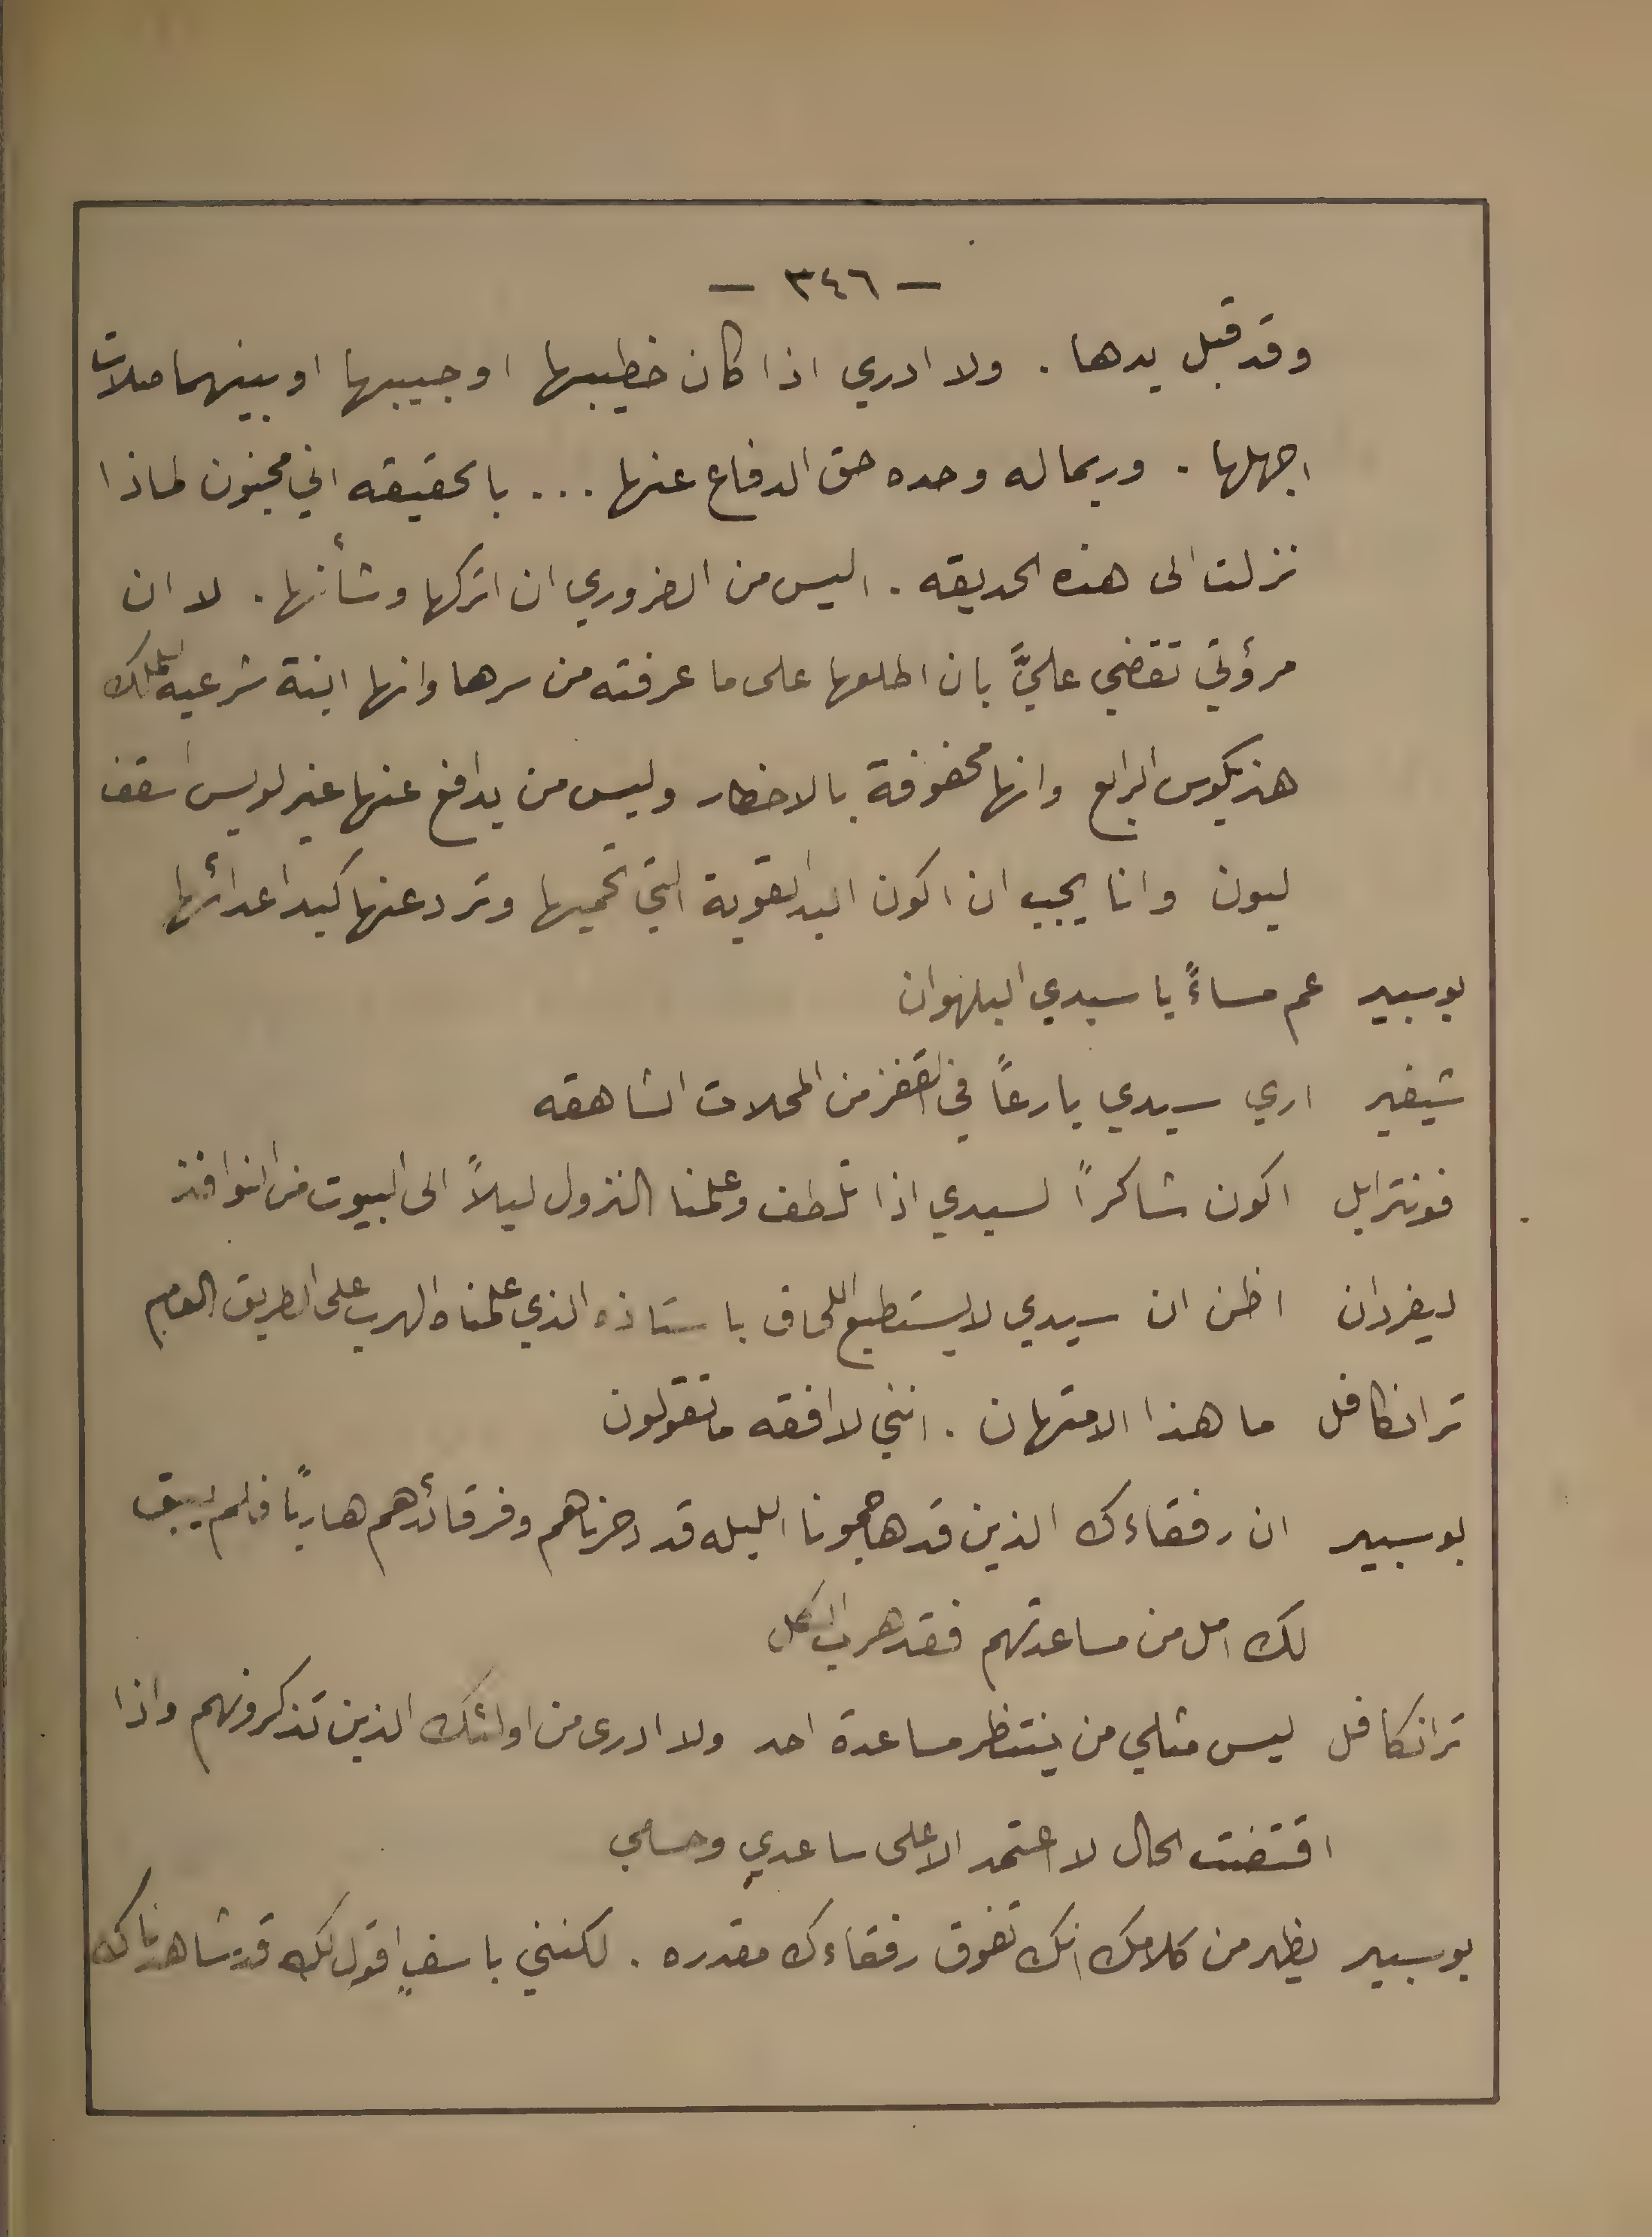 — ٣٤٦ —
وقد قبل يدها . ولا ادري اذا كان خطيبها او حبيبها او بينهما صلات
اجهلها . وربما له وحده حق الدفاع عنها ... بالحقيقه اني مجنون لماذا
نزلت الى هذه الحديقه . اليس من الضروري ان اتركها وشأنها . لا ان
مرؤتي تقضي عليَّ بان اطلعها على ما عرفته من سرها وانها ابنة شرعيه للملك
هنريكوس الرابع وانها محفوفة بالاخطار وليس من يدافع عنها غير لويس اسقف
ليون وانا يجب ان اكون اليد القوية التي تحميها وترد عنها كيد اعدائها
بوسبير عم مساءً يا سيدي البهلوان
شيفير ارى سيدي بارعاً في القفز من المحلات الشاهقه
فونترايل اكون شاكراً لسيدي اذا تلطف وعلمنا النزول ليلاً الى البيوت من النوافذ
ليفردان اظن ان سيدي لا يستطيع اللحاق باستاذه الذي علمناه الهرب على الطريق العام
ترانكافل ما هذا الامتهان . انني لا افقه ما تقولون
بوسبير ان رفقاءك الذين قد هاجمونا الليله قد دحرناهم وفر قائدهم هارباً فلم يبق
لك امل من مساعدتهم فقد هرب الكل
ترانكافل ليس مثلي من ينتظر مساعدة احد ولا ادرى من اولئك الذين تذكرونهم واذا
اقتضت الحال لا اعتمد الا على ساعدي وحسامي
بوسبير يظهر من كلامك انك تفوق رفقاءك مقدره . لكنني باسفٍ اقول لك قد شاهدناك